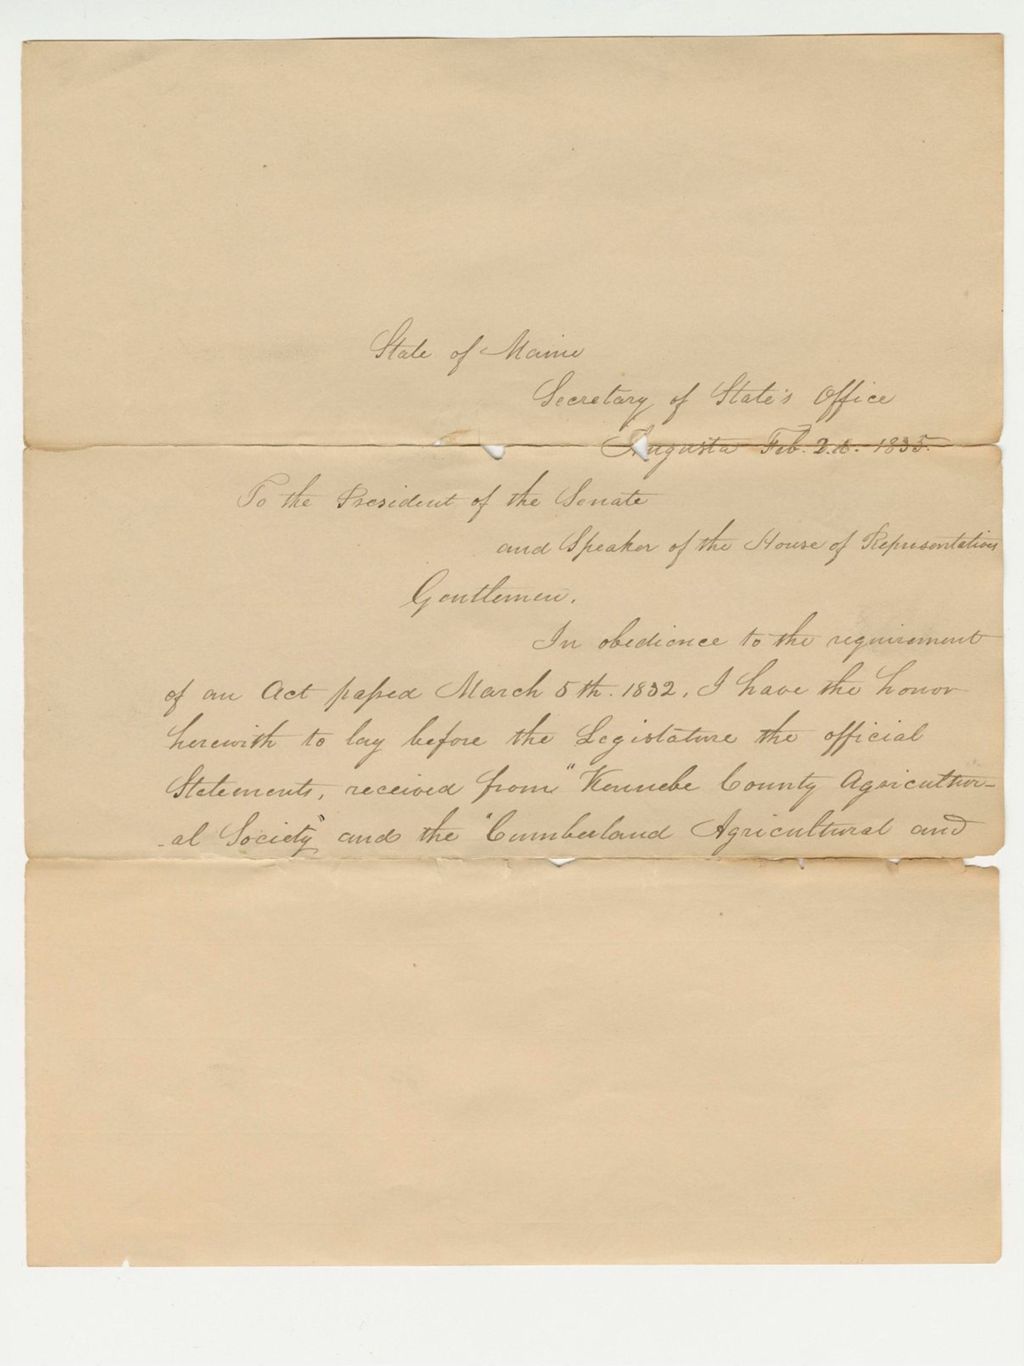 State of Maine
Secretary of State's Office
Augusta Feb. 2. 1835.
To the President of the Senate
and Speaker of the House of Representatives
Gentlemen.
In obedience to the requirement
of an Act passed March 5th. 1832, I have the honor
herewith to lay before the Legislature the official
Statements, received from "Kennebe County Agricultur-
-al Society" and the "Cumberland Agricultural and